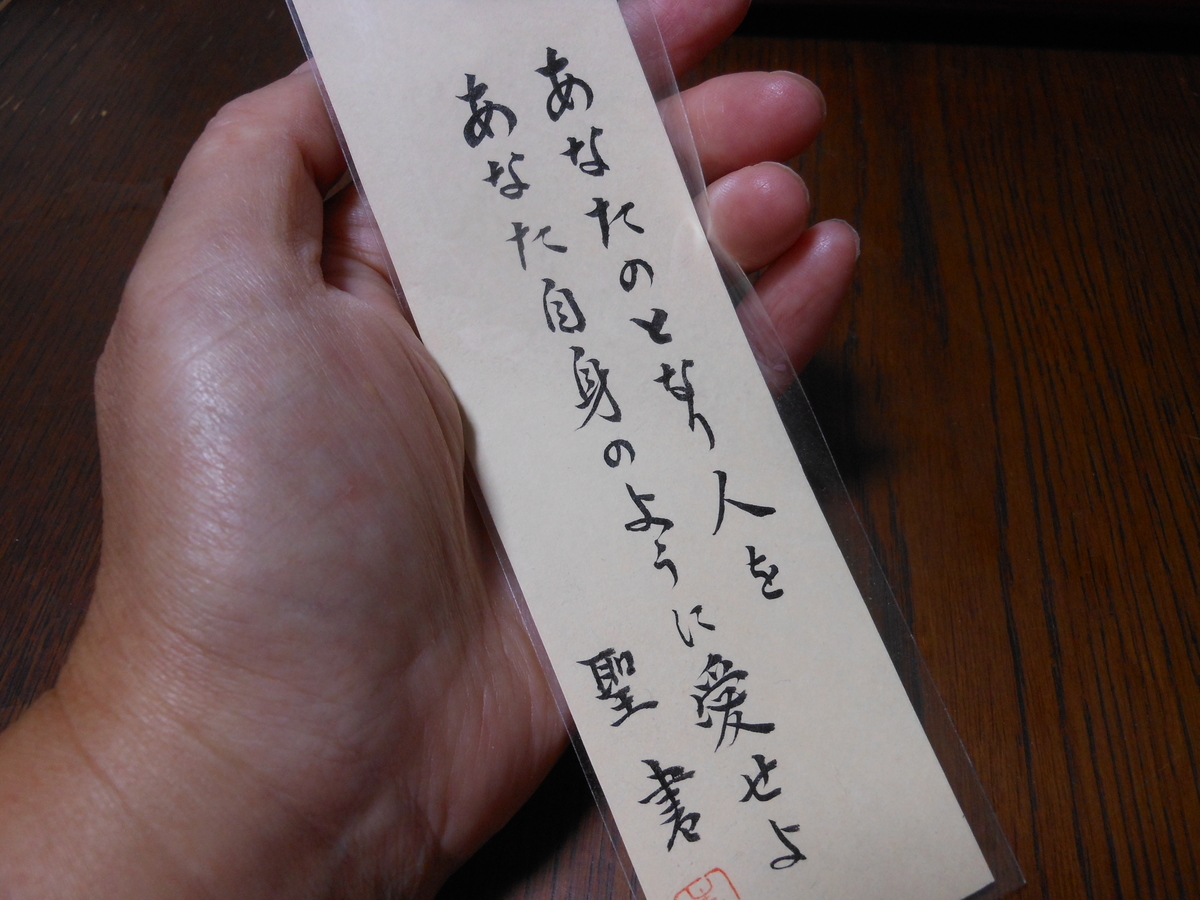 あなたのとなり人を
あなた自身のように愛せよ
聖書